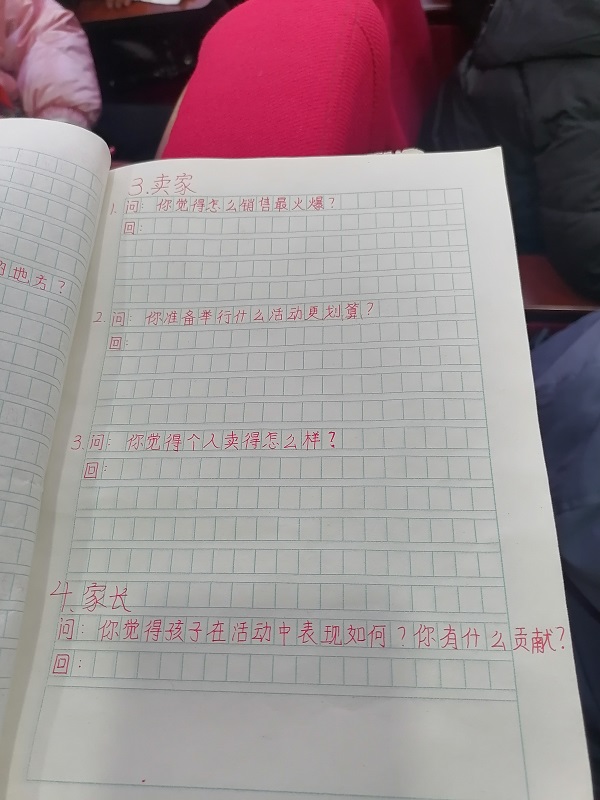 的地方？
3.卖家
1.问：你觉得怎么销售最火爆？
回：
2.问：你准备举行什么活动更划算？
回：
3.问：你觉得个人卖得怎么样？
回：
4、家长
问：你觉得孩子在活动中表现如何？你有什么贡献？
回：